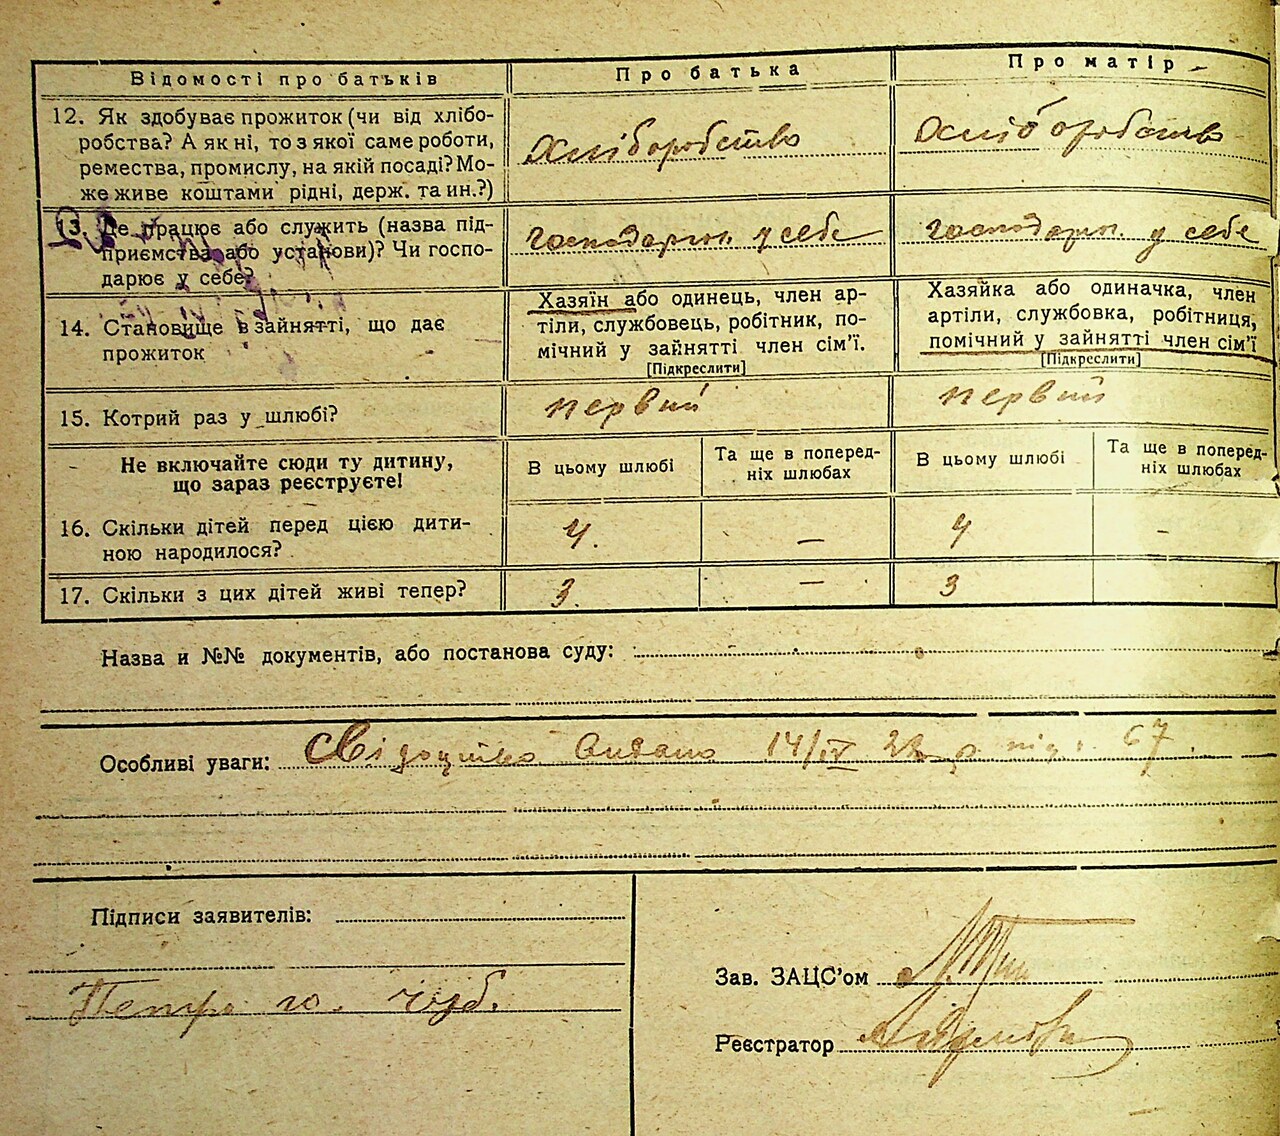 Відомості про батьків
Про батька
Про матір
12. Як здобуває прожиток (чи від хлібо-
робства? А як ні, то з якої саме роботи,
ремества, промислу, на якій посаді? Мо-
же живе коштами рідні, держ. та ин.?)
Хліборобство
Хліборобство
13. Де працює або служить (назва під-
приємства або установи)? Чи госпо-
дарює у себе?
господарює у себе
господарює у себе
14. Становище в зайнятті, що дає
прожиток
Хазяїн або одинець, член ар-
тіли, службовець, робітник, по-
мічний у зайнятті член сім'ї.
[Підкреслити]
Хазяйка або одиначка, член
артіли, службовка, робітниця,
помічний у зайнятті член сім'ї
[Підкреслити]
15. Котрий раз у шлюбі?
первий
первий
Не включайте сюди ту дитину,
що зараз реєструєте!
В цьому шлюбі
Та ще в поперед-
ніх шлюбах
В цьому шлюбі
Та ще в поперед-
ніх шлюбах
16. Скільки дітей перед цією дити-
ною народилося?
4.
—
4
-
17. Скільки з цих дітей живі тепер?
3.
—
3
Назва и №№ документів, або постанова суду:
Особливі уваги: Свідоцтво видано 14/IV 67.
Підписи заявителів:
Петро
Зав. ЗАЦС'ом
Реєстратор